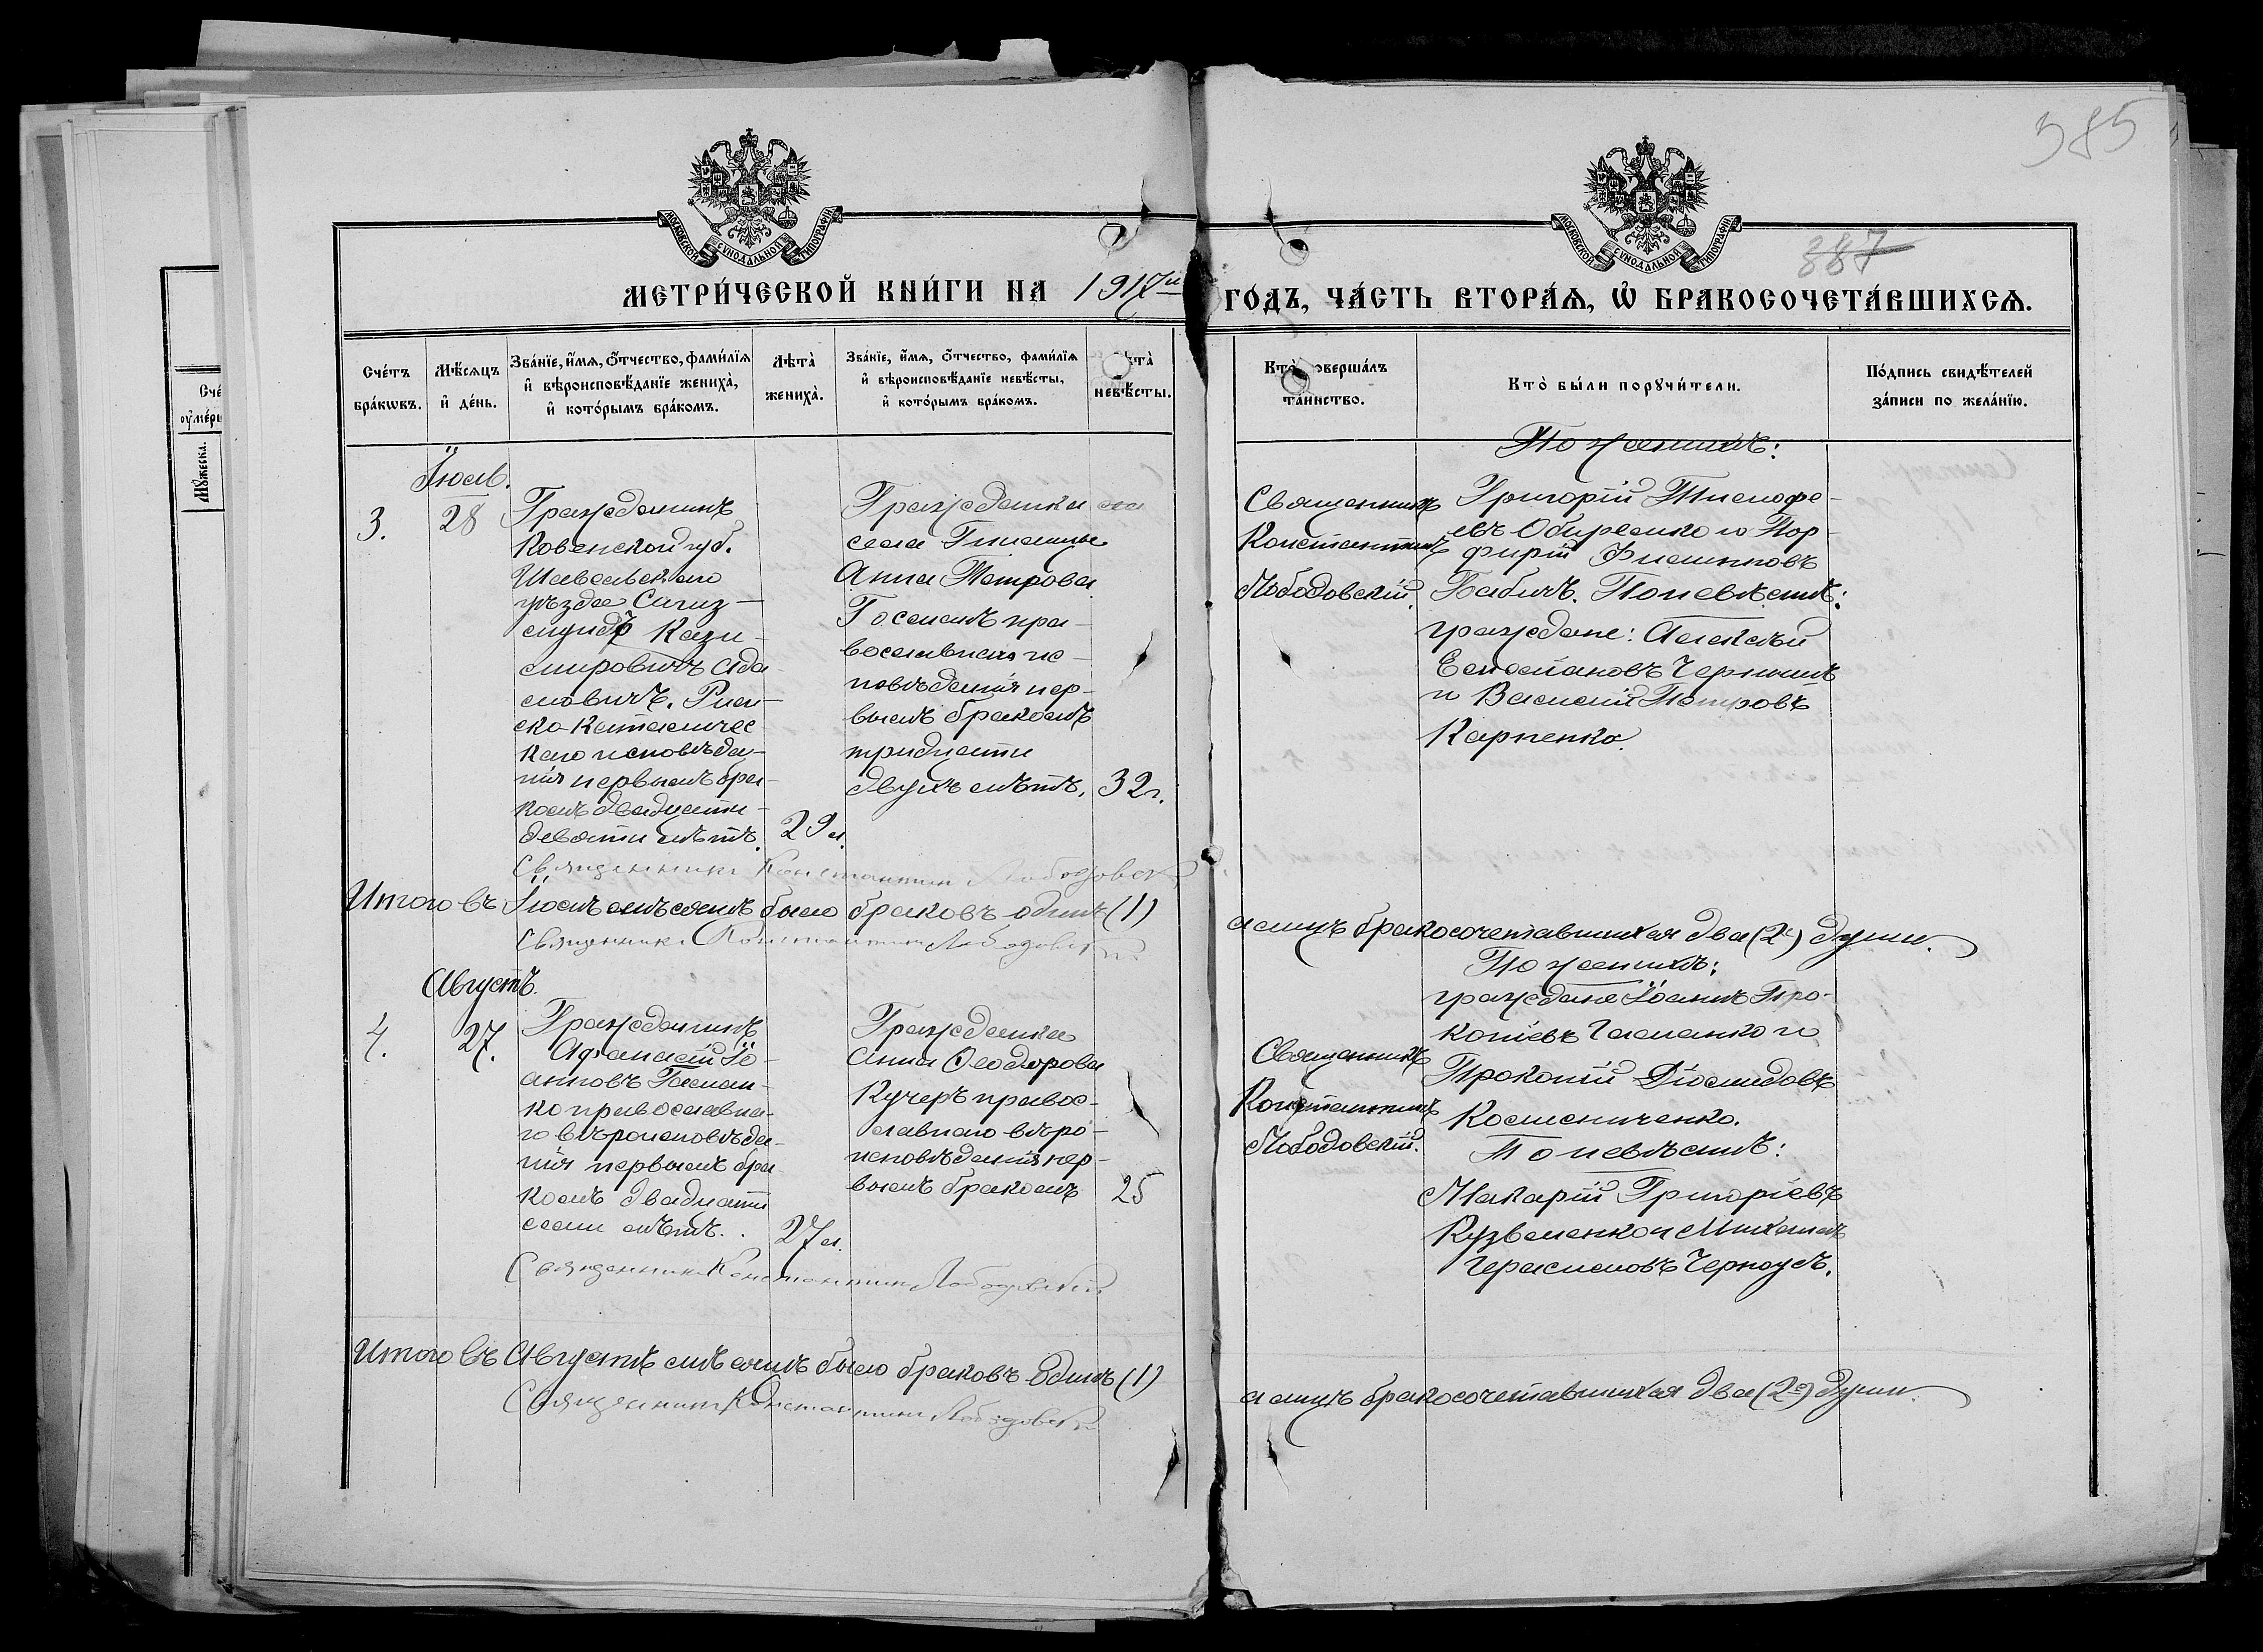 385
387
МОСКОВСКОЙ СѴНОДАЛЬНОЙ ТИПОГРАФІИ
МОСКОВСКОЙ СѴНОДАЛЬНОЙ ТИПОГРАФІИ
МЕТРИ́ЧЕСКОЙ КНИ́ГИ НА 1917й ГО́ДЪ, ЧА́СТЬ ВТОРА́Ѧ, Ѡ҆ БРАКОСОЧЕТА́ВШИХСѦ.
Сче́тъ бра́кѡвъ.
Мѣ́сяцъ и҆ де́нь.
Зва́нїе, и҆́мя, ѻ҆́тчество, фами́лїя
и҆ вѣроисповѣ́данїе жениха̀,
и҆ кото́рымъ бра́комъ.
Лѣта̀ жениха̀.
Зва́нїе, и҆́мя, ѻ҆́тчество, фами́лїя
и҆ вѣроисповѣ́данїе невѣ́сты,
и҆ кото́рымъ бра́комъ.
ѣта̀ невѣ́сты.
Кто̀ соверша́лъ та́инство.
Кто̀ бы́ли порꙋчи́тели.
По́дпись свидѣ́телей за́писи по жела́нїю.
Іюль.
3.
28
Гражданинъ
Ковенской губ.
Шавельскаго
уѣзда Сигиз-
мундъ Кази-
мировичъ Ада-
мовичъ. Рим-
ско-Католичес
каго исповѣда-
нія первымъ бра-
комъ двадцати-
девяти лѣтъ.
29 л.
Гражданка
села
Анна Петрова
Госемъ пра-
вославнаго ис-
повѣданія пер-
вымъ бракомъ
тридцати
двухъ лѣтъ.
32 г.
Священникъ
Константинъ
Лободовскій.
По женихѣ:
Григорій Тимофе-
евъ и Пор-
фирій Филипповъ
Бабичъ. По невѣстѣ:
граждане: Алексѣй
и Василій Петровъ
Карпенко.
Священникъ Константинъ Лободовскій
Итого въ Іюлѣ мѣсяцѣ было браковъ одинъ (1)
а лицъ бракосочетавшихся два (2е) души.
Священникъ Константинъ Лободовскій
Августъ.
4.
27.
Гражданинъ
Афанасій Іо-
анновъ Гаман-
ко православна-
го вѣроисповѣда-
нія первымъ бра-
комъ двадцати
семи лѣтъ.
27 л.
Гражданка
Анна Ѳеодорова
Кучеръ правос-
лавнаго вѣро-
исповѣданія пер-
вымъ бракомъ
25
Священникъ
Константинъ
Лободовскій.
По женихѣ:
граждане Іоаннъ Про-
копіевъ Гаманко и
Прокопій Діомидовъ
Колесниченко.
По невѣстѣ:
Макарій Григоріевъ
Кузьменко и Михаилъ
Герасимовъ Черноусъ.
Священникъ Константинъ Лободовскій
Итого въ Августѣ мѣсяцѣ было браковъ одинъ (1)
а лицъ бракосочетавшихся два (2е) души.
Священникъ Константинъ Лободовскій